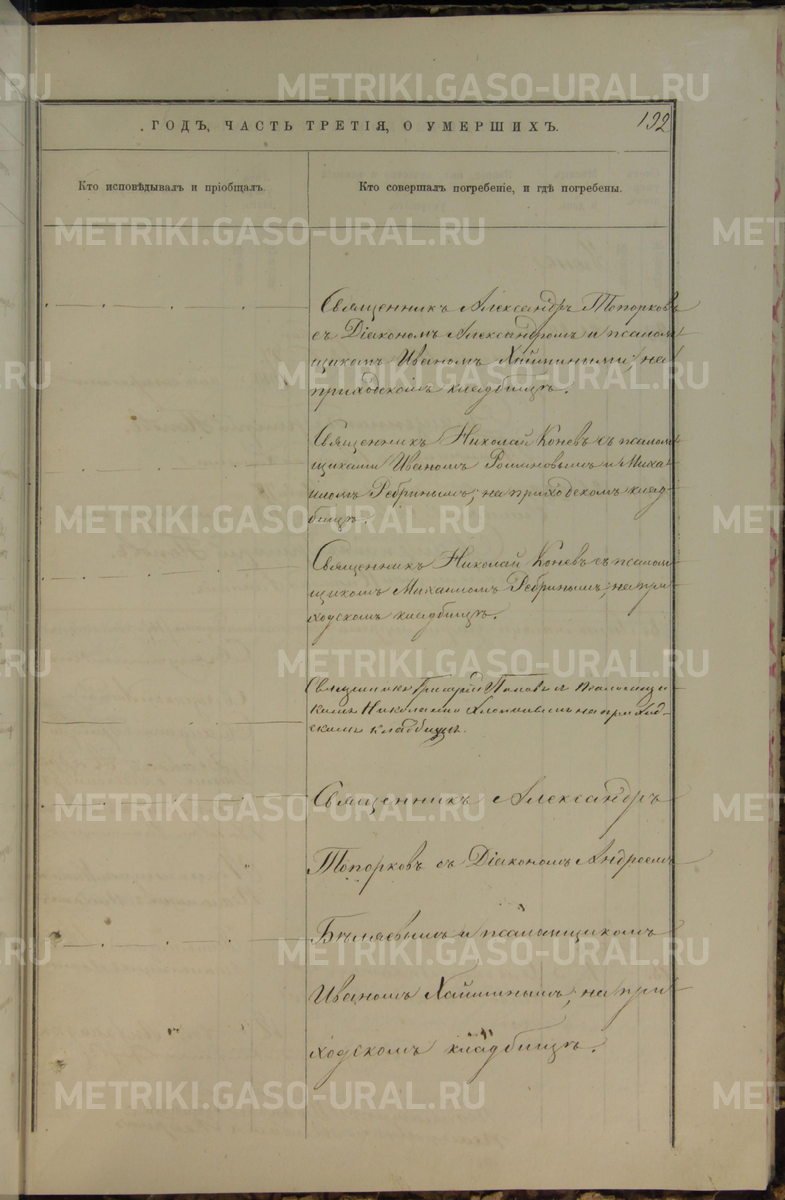 192
ГОДЪ, ЧАСТЬ ТРЕТІЯ, О УМЕРШИХЪ.
Кто исповѣдывалъ и пріобщалъ.
Кто совершалъ погребеніе, и гдѣ погребены.
Священникъ Александръ Топорковъ
съ Діакономъ Александромъ и псалом-
щикомъ Иваномъ Хаймиными, на
приходскомъ кладбищѣ.
Священникъ Николай Коневъ съ псалом-
щиками Иваномъ Романовымъ и Миха-
иломъ Ребринымъ; на приходскомъ клад-
бищѣ.
Священникъ Николай Коневъ съ псалом-
щикомъ Михаиломъ Ребринымъ, на при-
ходскомъ кладбищѣ.
Священникъ Григорій Поповъ съ Псаломщи-
комъ Николаемъ на приход-
скомъ кладбищѣ.
Священникъ Александръ
Топорковъ съ Діакономъ Андреемъ
Бѣляевымъ и псаломщикомъ
Иваномъ Хайминымъ, на при-
ходскомъ кладбищѣ.
METRIKI.GASO-URAL.RU